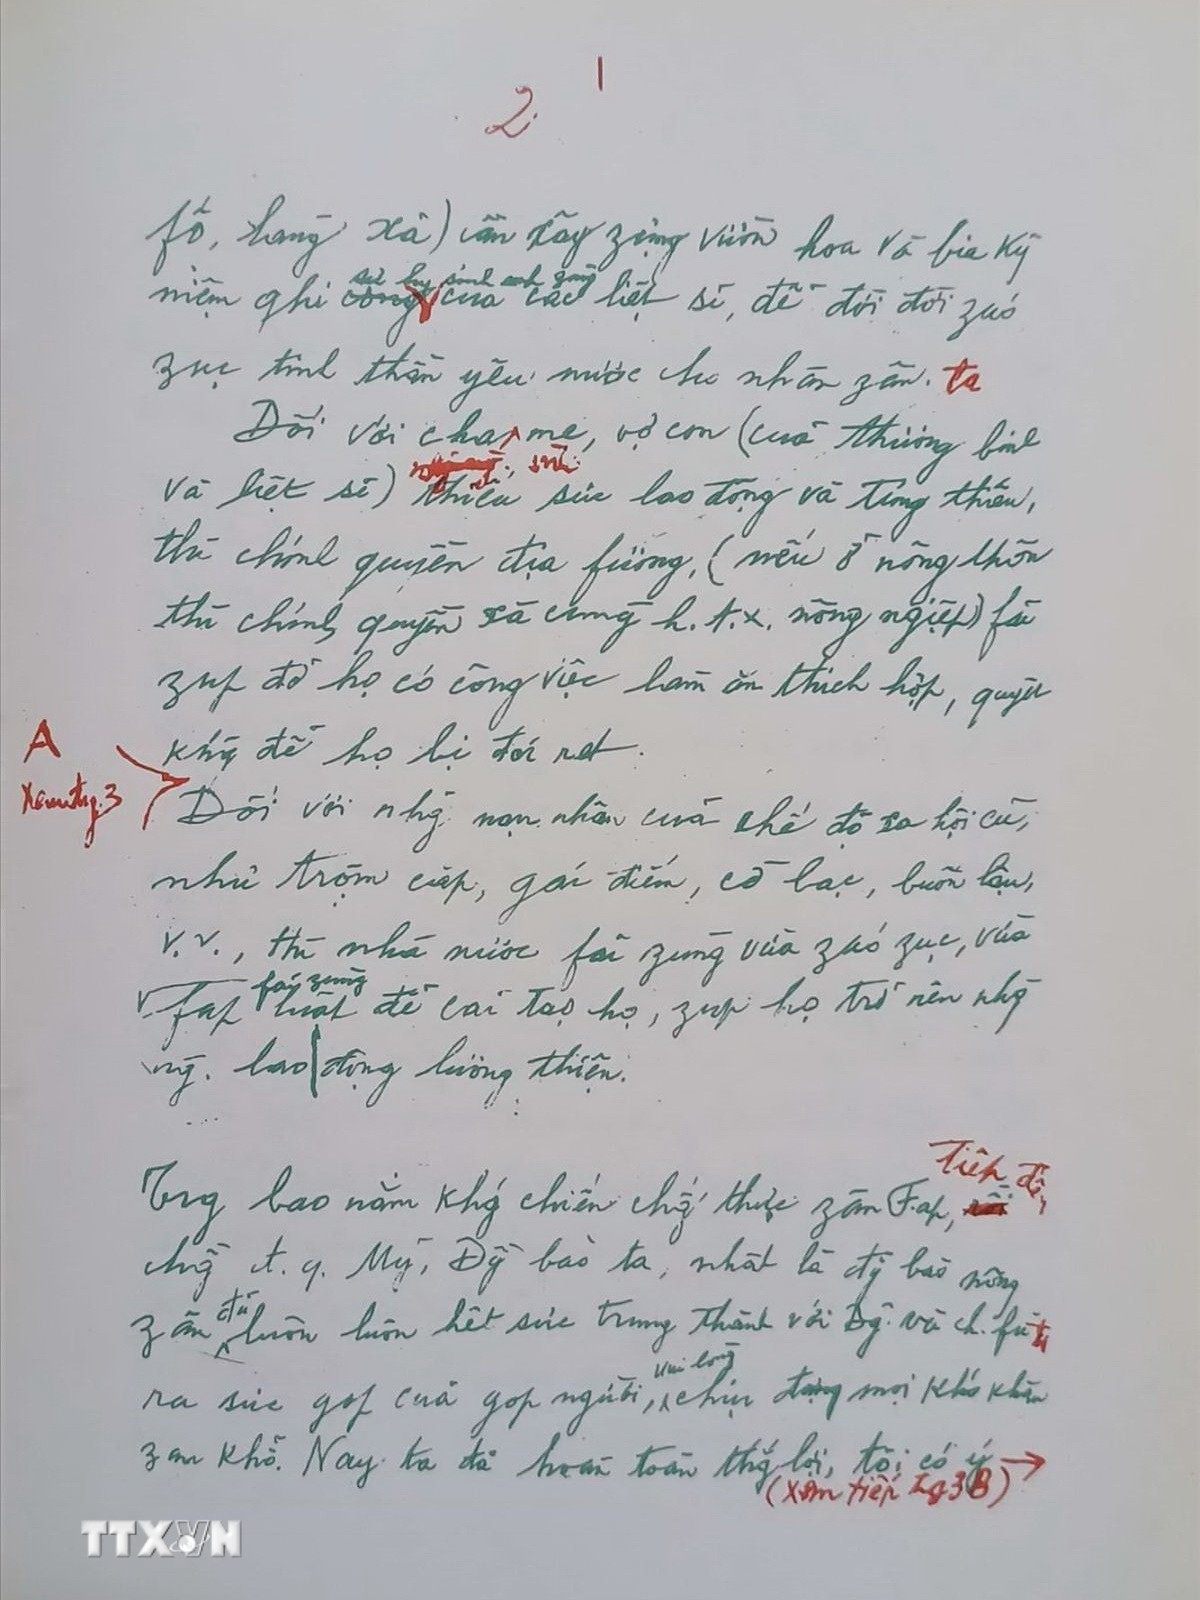 1
2.
fố, làng xã) cần xây zựng vườn hoa và bia kỷ
sự hy sinh anh zũng
niệm ghi công của các liệt sĩ, để đời đời záo
zục tinh thần yêu nước cho nhân zân. ta
Đối với cha, mẹ, vợ con (của thương binh
và liệt sĩ) thiếu sức lao động và túng thiếu,
thì chính quyền địa fương, (nếu ở nông thôn
thì chính quyền xã cùng h.t.x. nông ngiệp) fải
zúp đỡ họ có công việc làm ăn thích hợp, quyết
khg để họ bị đói rét.
A
Xem tʳg.3
Đối với nhg nạn nhân của chế độ xã hội cũ,
như trộm cắp, gái điếm, cờ bạc, buôn lậu,
v.v., thì nhà nước fải zùng vừa záo zục, vừa
fải zùng
fáp luật để cải tạo họ, zúp họ trở nên nhg
ng. lao động lương thiện.
tiếp đến
Trg bao năm khg chiến chg thực zân Fáp,
chg đ.q. Mỹ, Đg bào ta, nhất là đg bào nông
đã
zân luôn luôn hết sức trung thành với Đg. và ch. fủ ta
vui lòng
ra sức góp của góp người, chịu đựng mọi khó khăn
zan khổ. Nay ta đã hoàn toàn thg lợi, tôi có ý →
(Xem tiếp Tg3B)
TTXVN